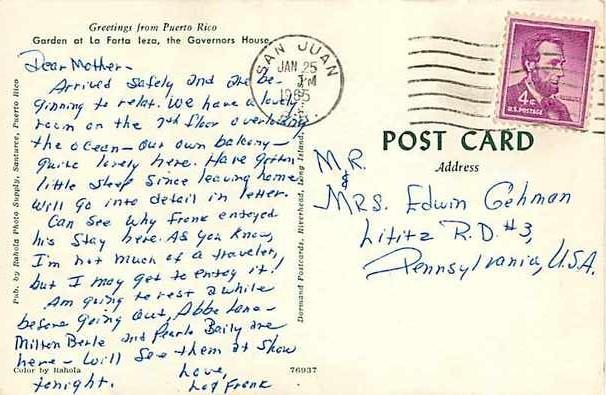 Greetings from Puerto Rico
Garden at La Forta leza, the Governors House
Dear Mother-
Arrived safely and are be-
ginning to relax. We have a lovely
room on the 7th floor overlooking
the ocean - our own balcony -
quite lovely here. Have gotten
little sleep since leaving home
will go into detail in letter.
Can see why Frank enjoyed
his stay here. As you know,
I'm not much of a traveler,
but I may get to enjoy it!
Am going to rest a while
before going out, Abbe Lane -
Milton Berle and Pearls Baily are
here - will see them at show
tonight. Love,
Frank
Color by Rahola
76937
Pub. by Rahola Photo Supply, Santurce, Puerto Rico
Dormand Postcards, Riverhead, Long Island
SAN JUAN
JAN 25
PM
1965
4c
U.S. POSTAGE
POST CARD
Address
MR.
&
MRS. Edwin Gehman
Lititz R.D. #3,
Pennsylvania, U.S.A.